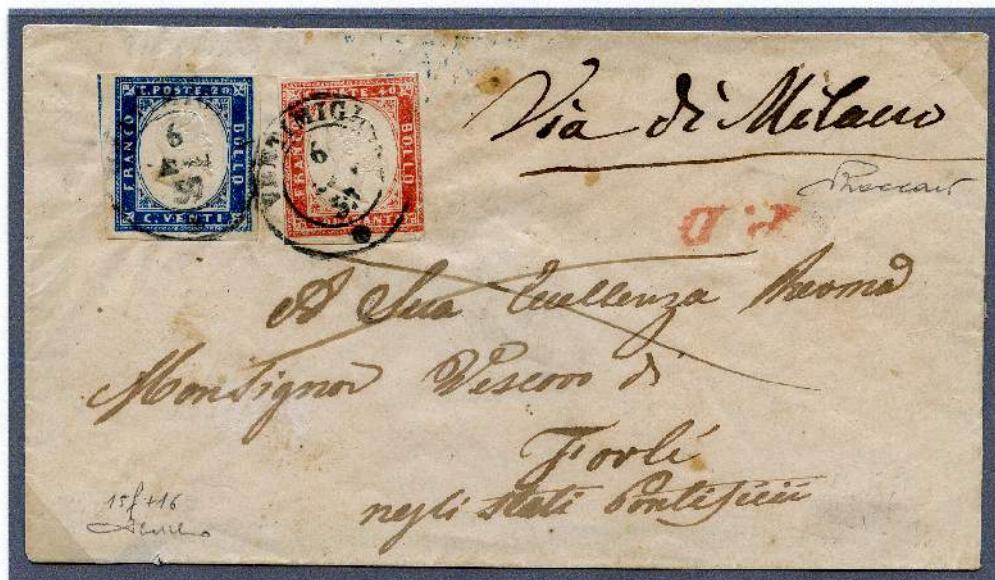 C. POSTE. 20
FRANCO
BOLLO
C. VENTI
C. POSTE. 40
FRANCO
BOLLO
VENTIMIGLIA
Via di Milano
P. D
A Sua Eccellenza Revma
Monsignor Vescovo di
Forlí
negli Stati Pontificii
15f +16